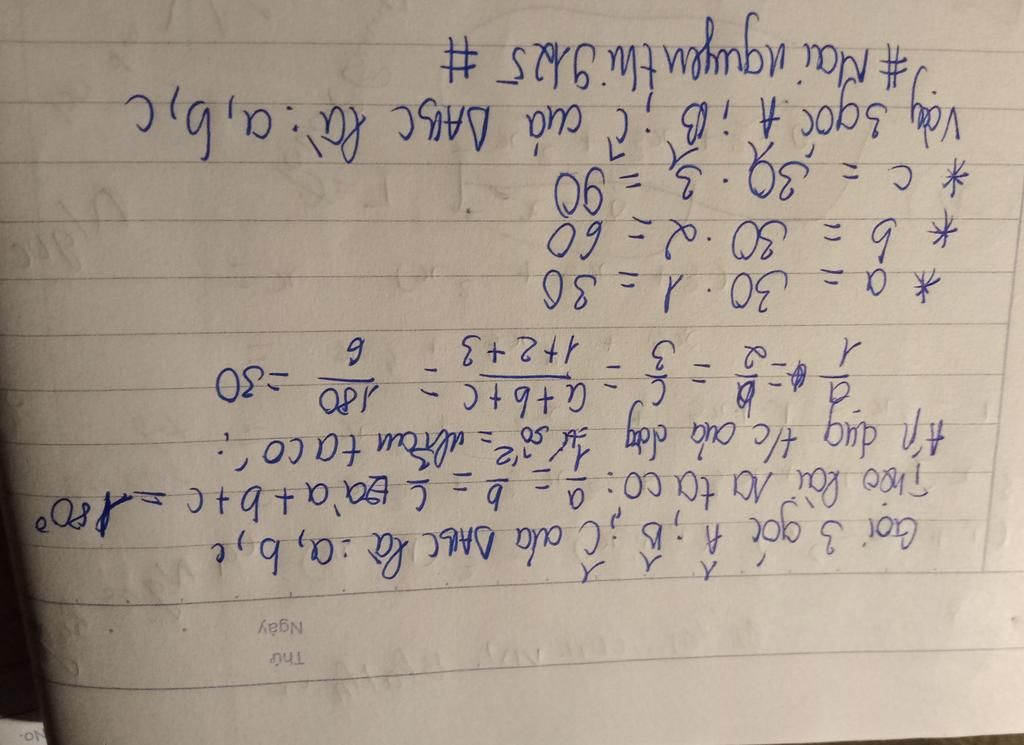 No.
Thứ
Ngày
Gọi 3 góc Â; B̂; Ĉ của ΔABC là: a, b, c
Theo bài ra ta có: a/1 = b/2 = c/3 và a + b + c = 180°
Áp dụg t/c của dãy tỉ số = nhau ta có:
a/1 = b/2 = c/3 = a+b+c/1+2+3 = 180/6 = 30
* a = 30 . 1 = 30
* b = 30 . 2 = 60
* c = 30 . 3 = 90
Vậy 3 góc Â; B̂; Ĉ của ΔABC là: a, b, c
# Mai nguyen thi 9125 #